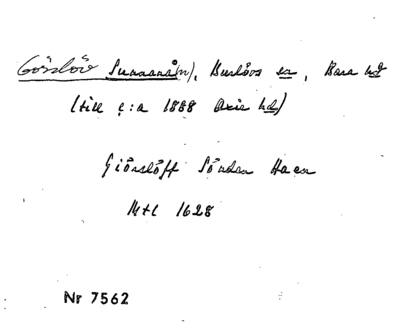 Görslöv Sunnanå(n), Burlövs sn, Bara hd
(till c:a 1888 Oxie hd)
Giörslöff Sönden Haen
Mtl 1628
Nr 7562